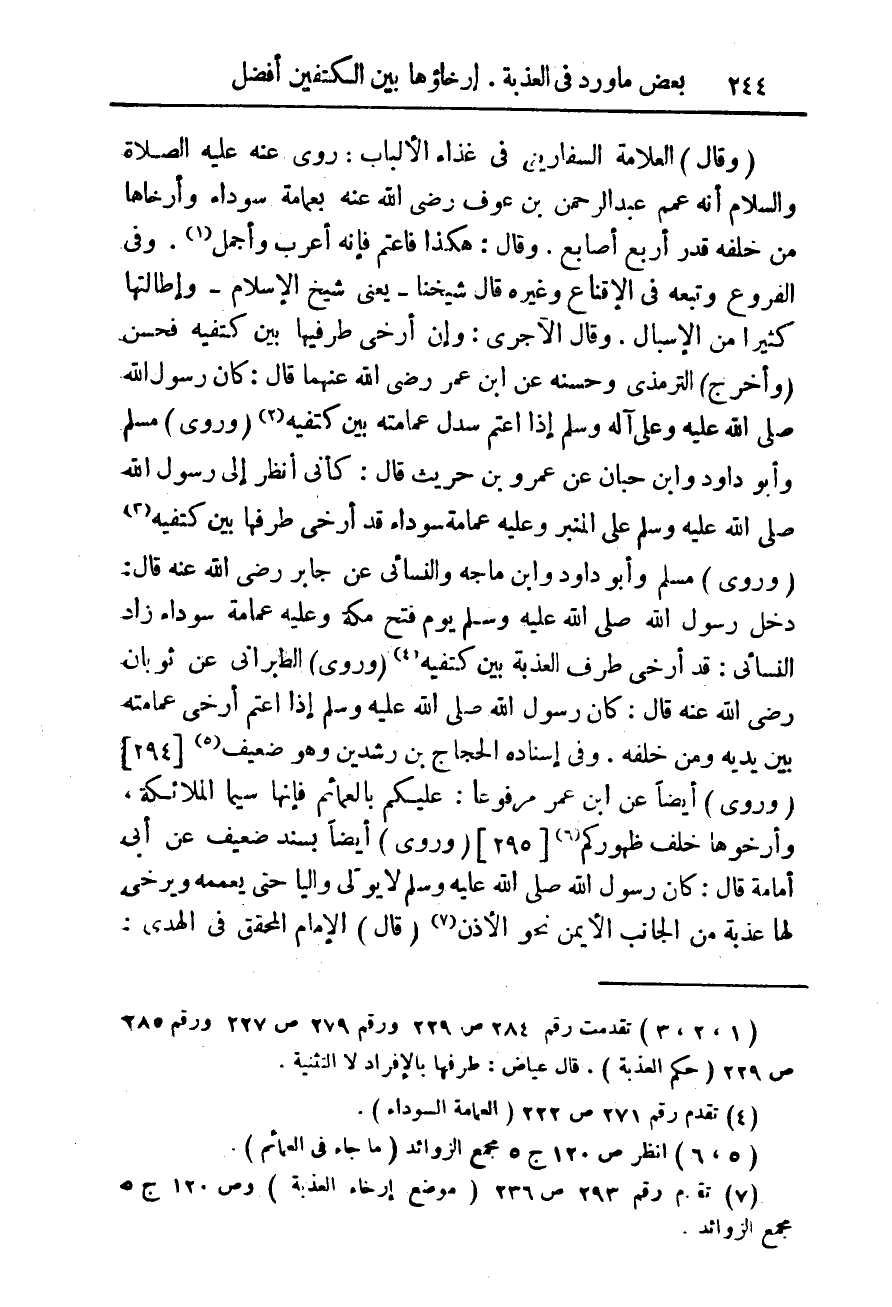 ٢٤٤ بعض ماورد فى العذبة . إرخاؤها بين الكتفين أفضل
( وقال ) العلامة السفارينى فى غذاء الألباب : روى عنه عليه الصلاة
والسلام أنه عمم عبدالرحمن بن عوف رضى الله عنه بعمامة سوداء وأرخاها
من خلفه قدر أربع أصابع . وقال : هكذا فاعتم فإنه أعرب وأجمل(١) . وفى
الفروع وتبعه فى الإقناع وغيره قال شيخنا ـ يعنى شيخ الإسلام ـ وإطالتها
كثيرا من الإسبال . وقال الآجرى : وإن أرخى طرفيها بين كتفيه فحسن
(وأخرج) الترمذى وحسنه عن ابن عمر رضى الله عنهما قال : كان رسول الله
صلى الله عليه وعلى آله وسلم إذا اعتم سدل عمامته بين كتفيه(٢) (وروى) مسلم
وأبو داود وابن حبان عن عمرو بن حريث قال : كأنى أنظر إلى رسول الله
صلى الله عليه وسلم على المنبر وعليه عمامة سوداء قد أرخى طرفها بين كتفيه(٣)
( وروى ) مسلم وأبو داود وابن ماجه والنسائى عن جابر رضى الله عنه قال:
دخل رسول الله صلى الله عليه وسلم يوم فتح مكة وعليه عمامة سوداء زاد
النسائى : قد أرخى طرف العذبة بين كتفيه(٤) (وروى) الطبرانى عن ثوبان
رضى الله عنه قال : كان رسول الله صلى الله عليه وسلم إذا اعتم أرخى عمامته
بين يديه ومن خلفه . وفى إسناده الحجاج بن رشدين وهو ضعيف(٥) [٢٩٤]
( وروى ) أيضاً عن ابن عمر مرفوعا : عليكم بالعمائم فإنها سيما الملائكة ،
وأرخوها خلف ظهوركم(٦) [ ٢٩٥ ] ( وروى ) أيضاً بسند ضعيف عن أبى
أمامة قال : كان رسول الله صلى الله عليه وسلم لا يولى واليا حتى يعممه ويرخى
لها عذبة من الجانب الأيمن نحو الأذن(٧) ( قال ) الإمام المحقق فى الهدى :
( ١ ، ٢ ، ٣ ) تقدمت رقم ٢٨٤ ص ٢٢٩ ورقم ٢٧٩ ص ٢٢٧ ورقم ٢٨٥
ص ٢٢٩ ( حكم العذبة ) . قال عياض : طرفها بالإفراد لا التثنية .
(٤) تقدم رقم ٢٧١ ص ٢٢٢ ( العمامة السوداء ) .
( ٥ ، ٦ ) انظر ص ١٢٠ ج ٥ مجمع الزوائد ( ما جاء فى العمائم ) .
(٧) تقدم رقم ٢٩٣ ص ٢٣٦ ( موضع إرخاء العذبة ) وص ١٢٠ ج ٥
مجمع الزوائد .